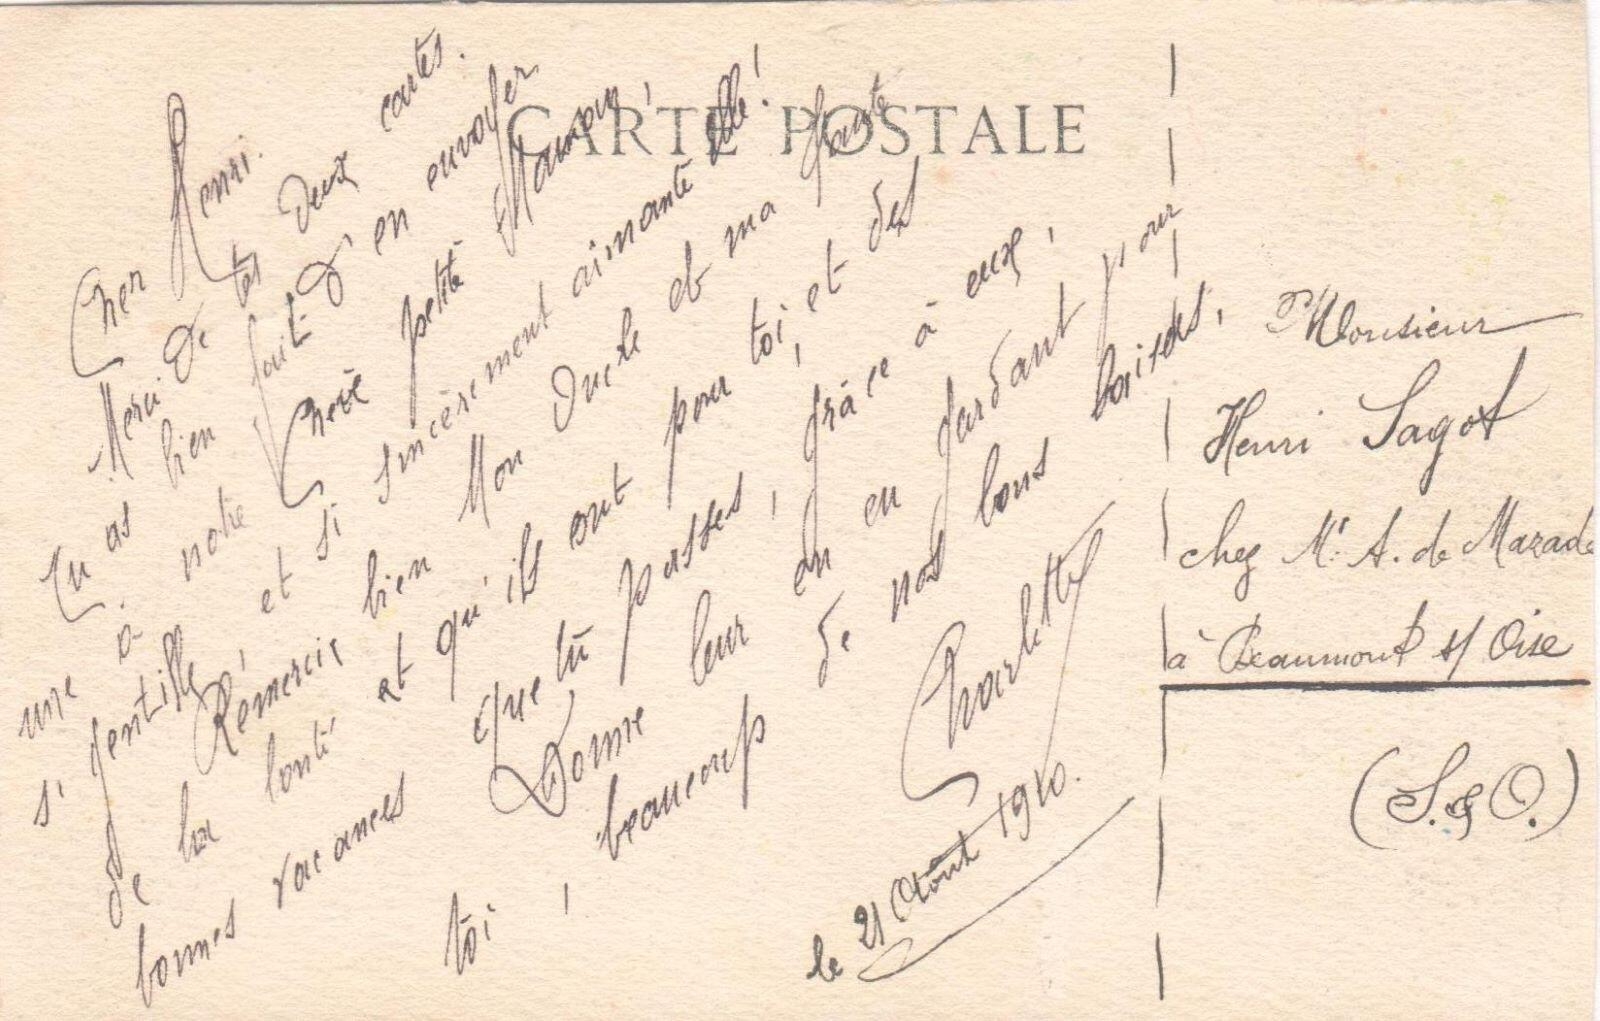 CARTE POSTALE
Cher Henri.
Merci de tes deux cartes.
Tu as bien fait d'en envoyer
une à notre Chère petite Maman,
si gentille, et si sincèrement aimante elle!
Remercie bien Mon Oncle et ma Tante
de la bonté et qu'ils ont pour toi, et des
bonnes vacances que tu passes, grâce à eux,
Donne leur en en gardant pour
toi, beaucoup de nos bons baisers,
Charlotte
le 21 Août 1910.
Monsieur
Henri Sagot
chez Mr. A. de Mazade
à Beaumont s/ Oise
(S. & O.)